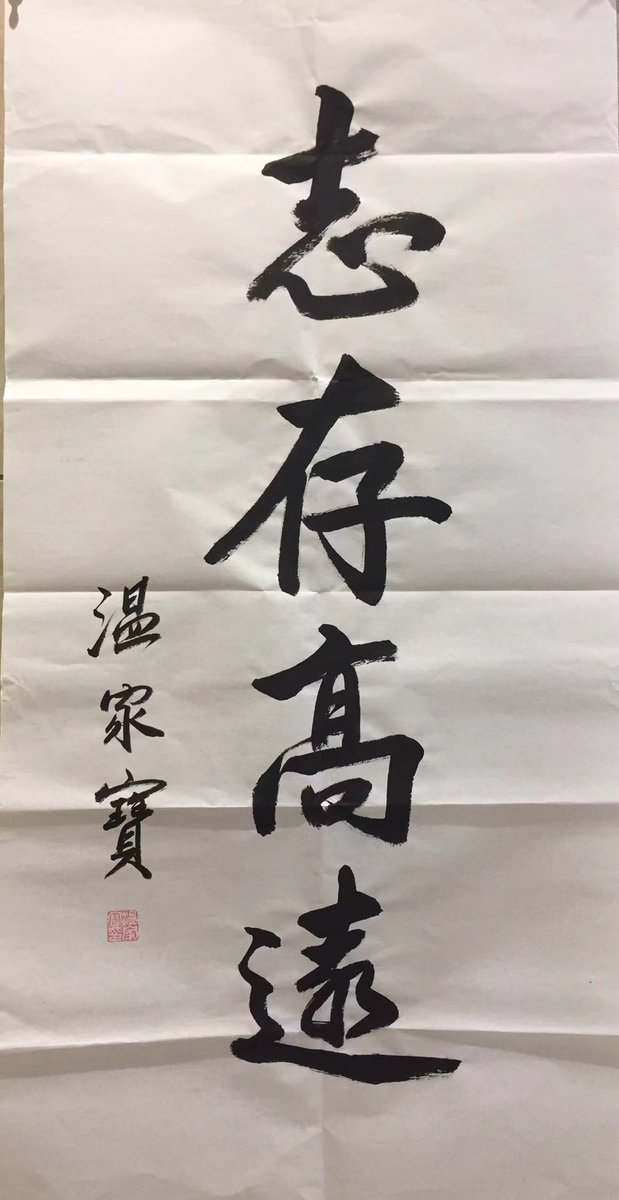 志存高遠
温家寶